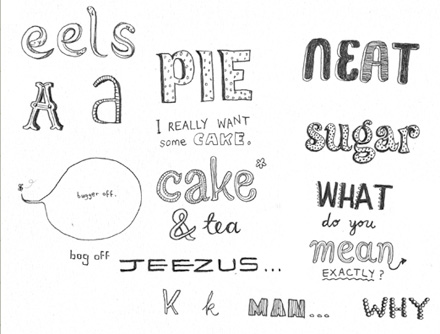 eels
A a
PIE
I REALLY WANT
some CAKE.
cake*
& tea
bugger off.
bog off
JEEZUS...
K k
MAN...
NEAT
sugar
WHAT
do you
mean
EXACTLY?
WHY